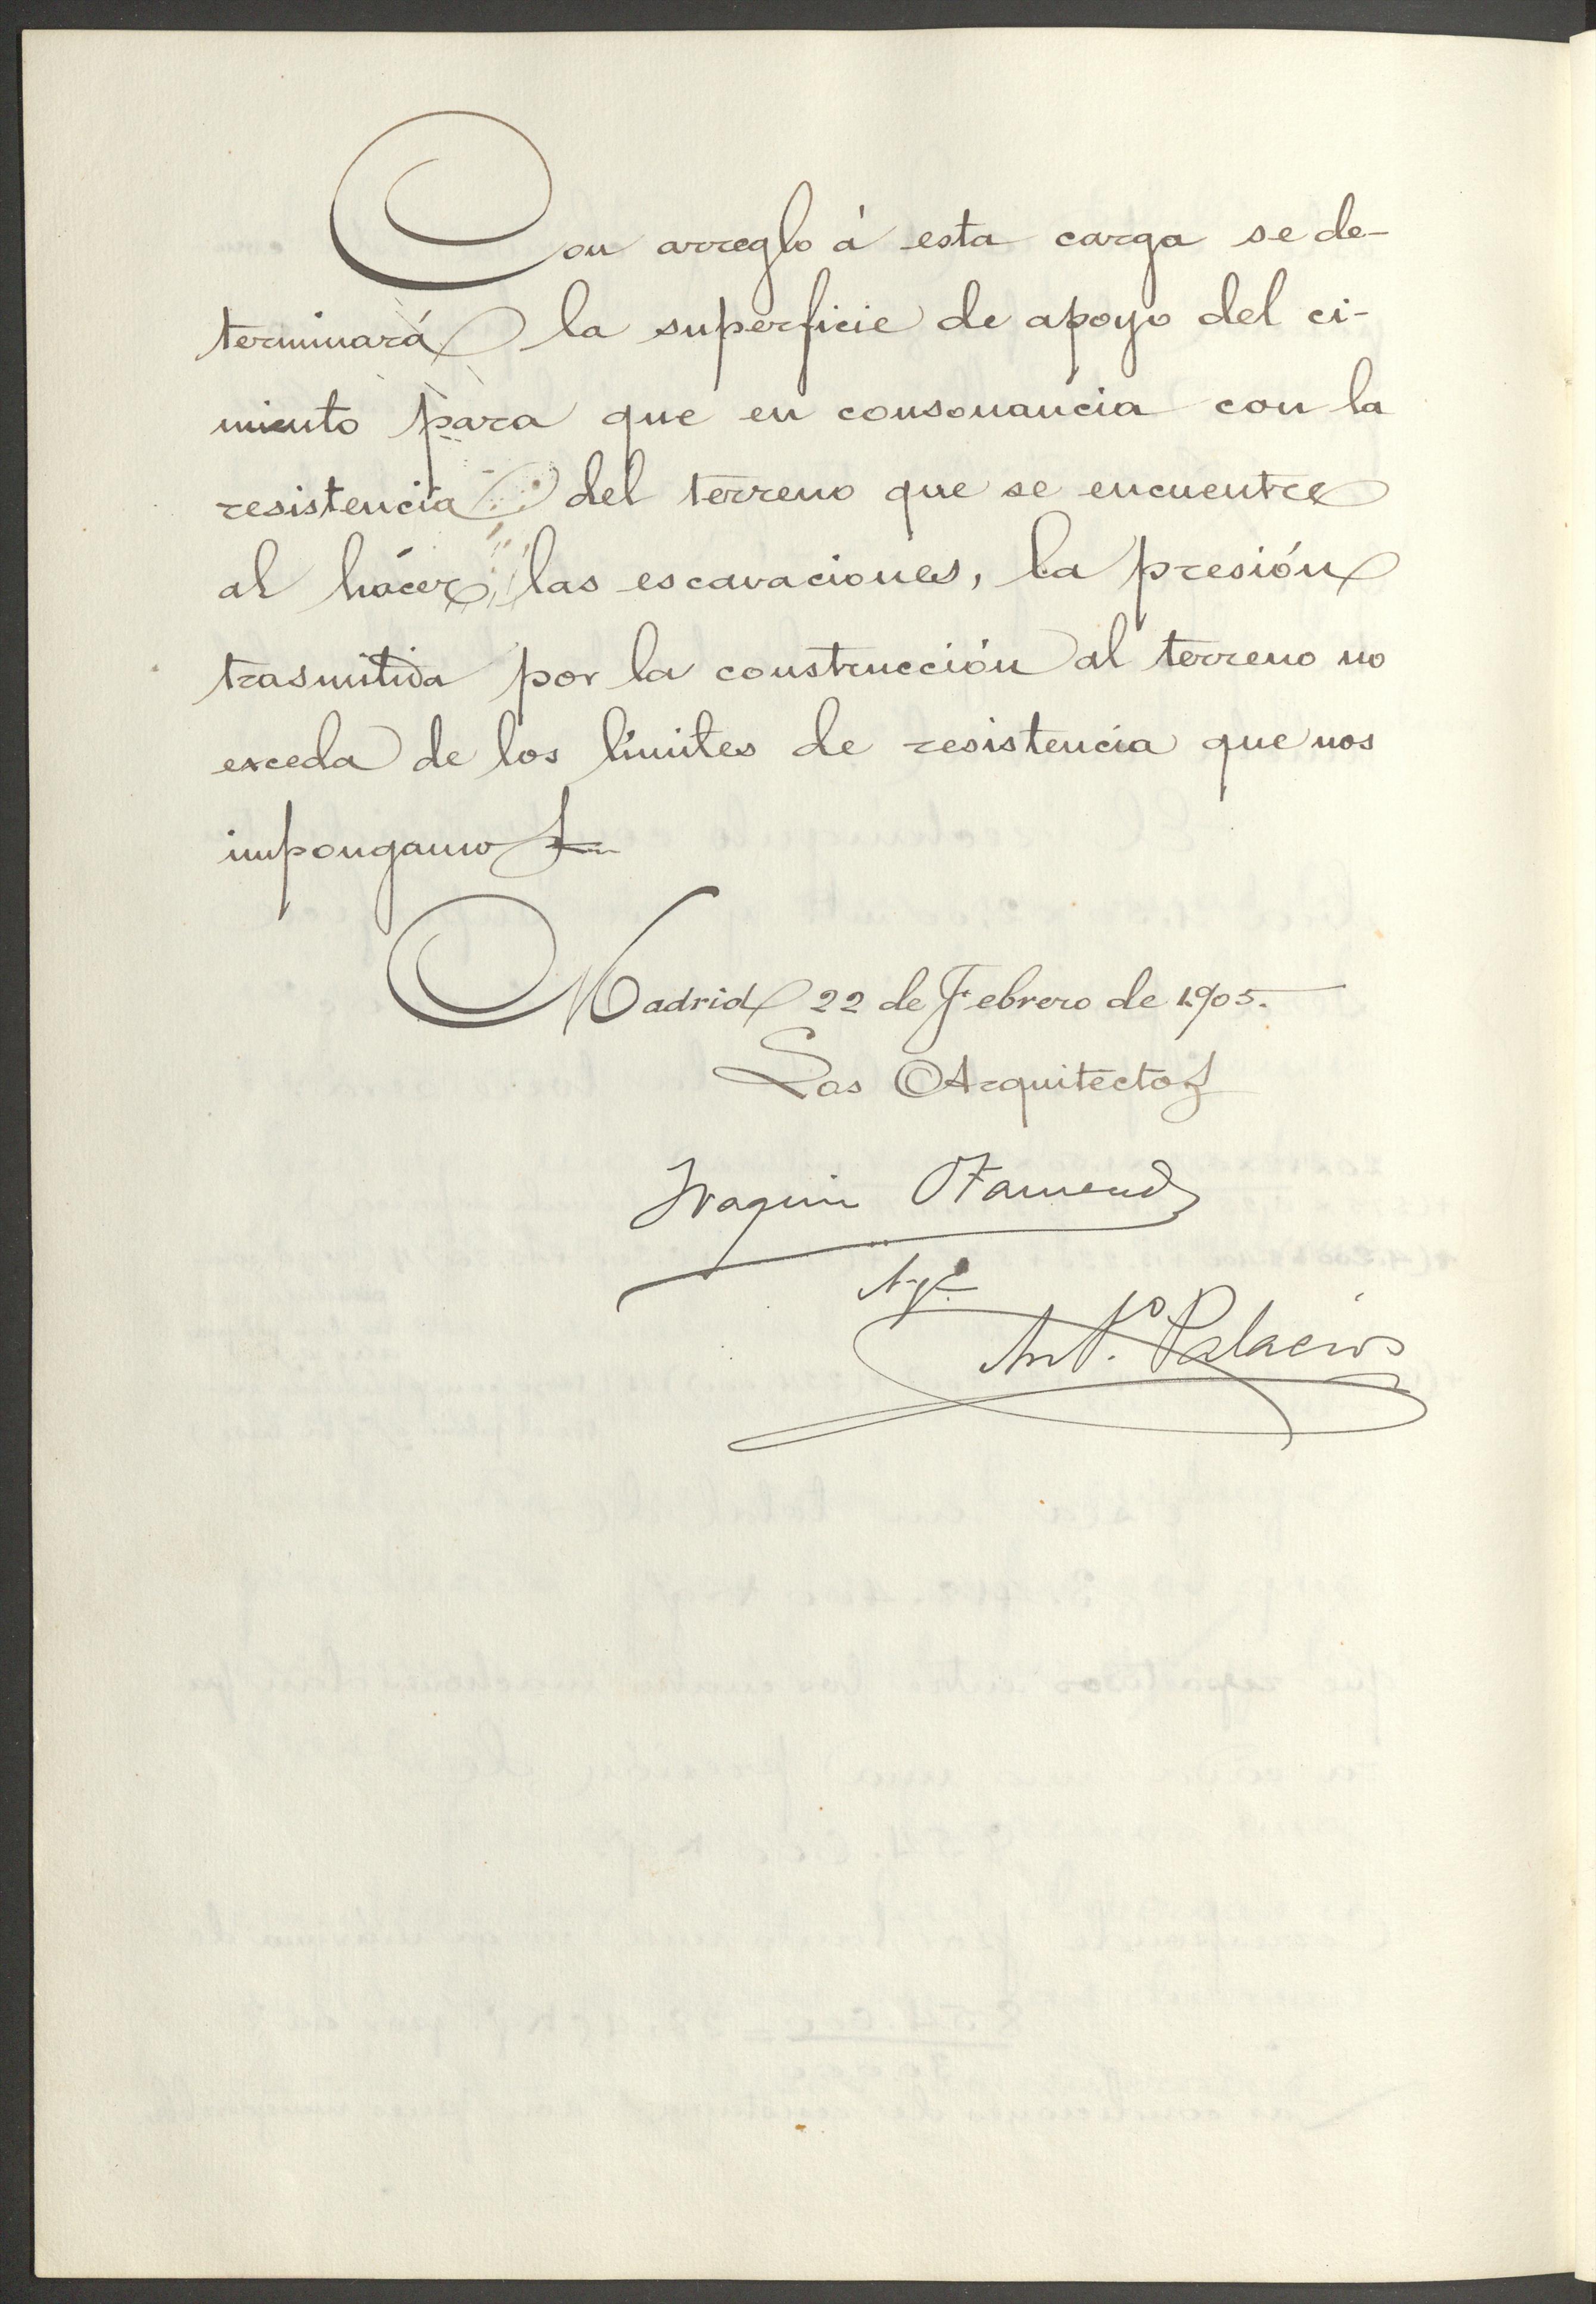 Con arreglo á esta carga se de-
terminará la superficie de apoyo del ci-
miento para que en consonancia con la
resistencia del terreno que se encuentre
al hácer las escavaciones, la presión
trasmitida por la construcción al terreno no
exceda de los límites de resistencia que nos
impongamos
Madrid 22 de Febrero de 1905.
Los Arquitectos
Joaquin Otamendi
Ant.º Palacios